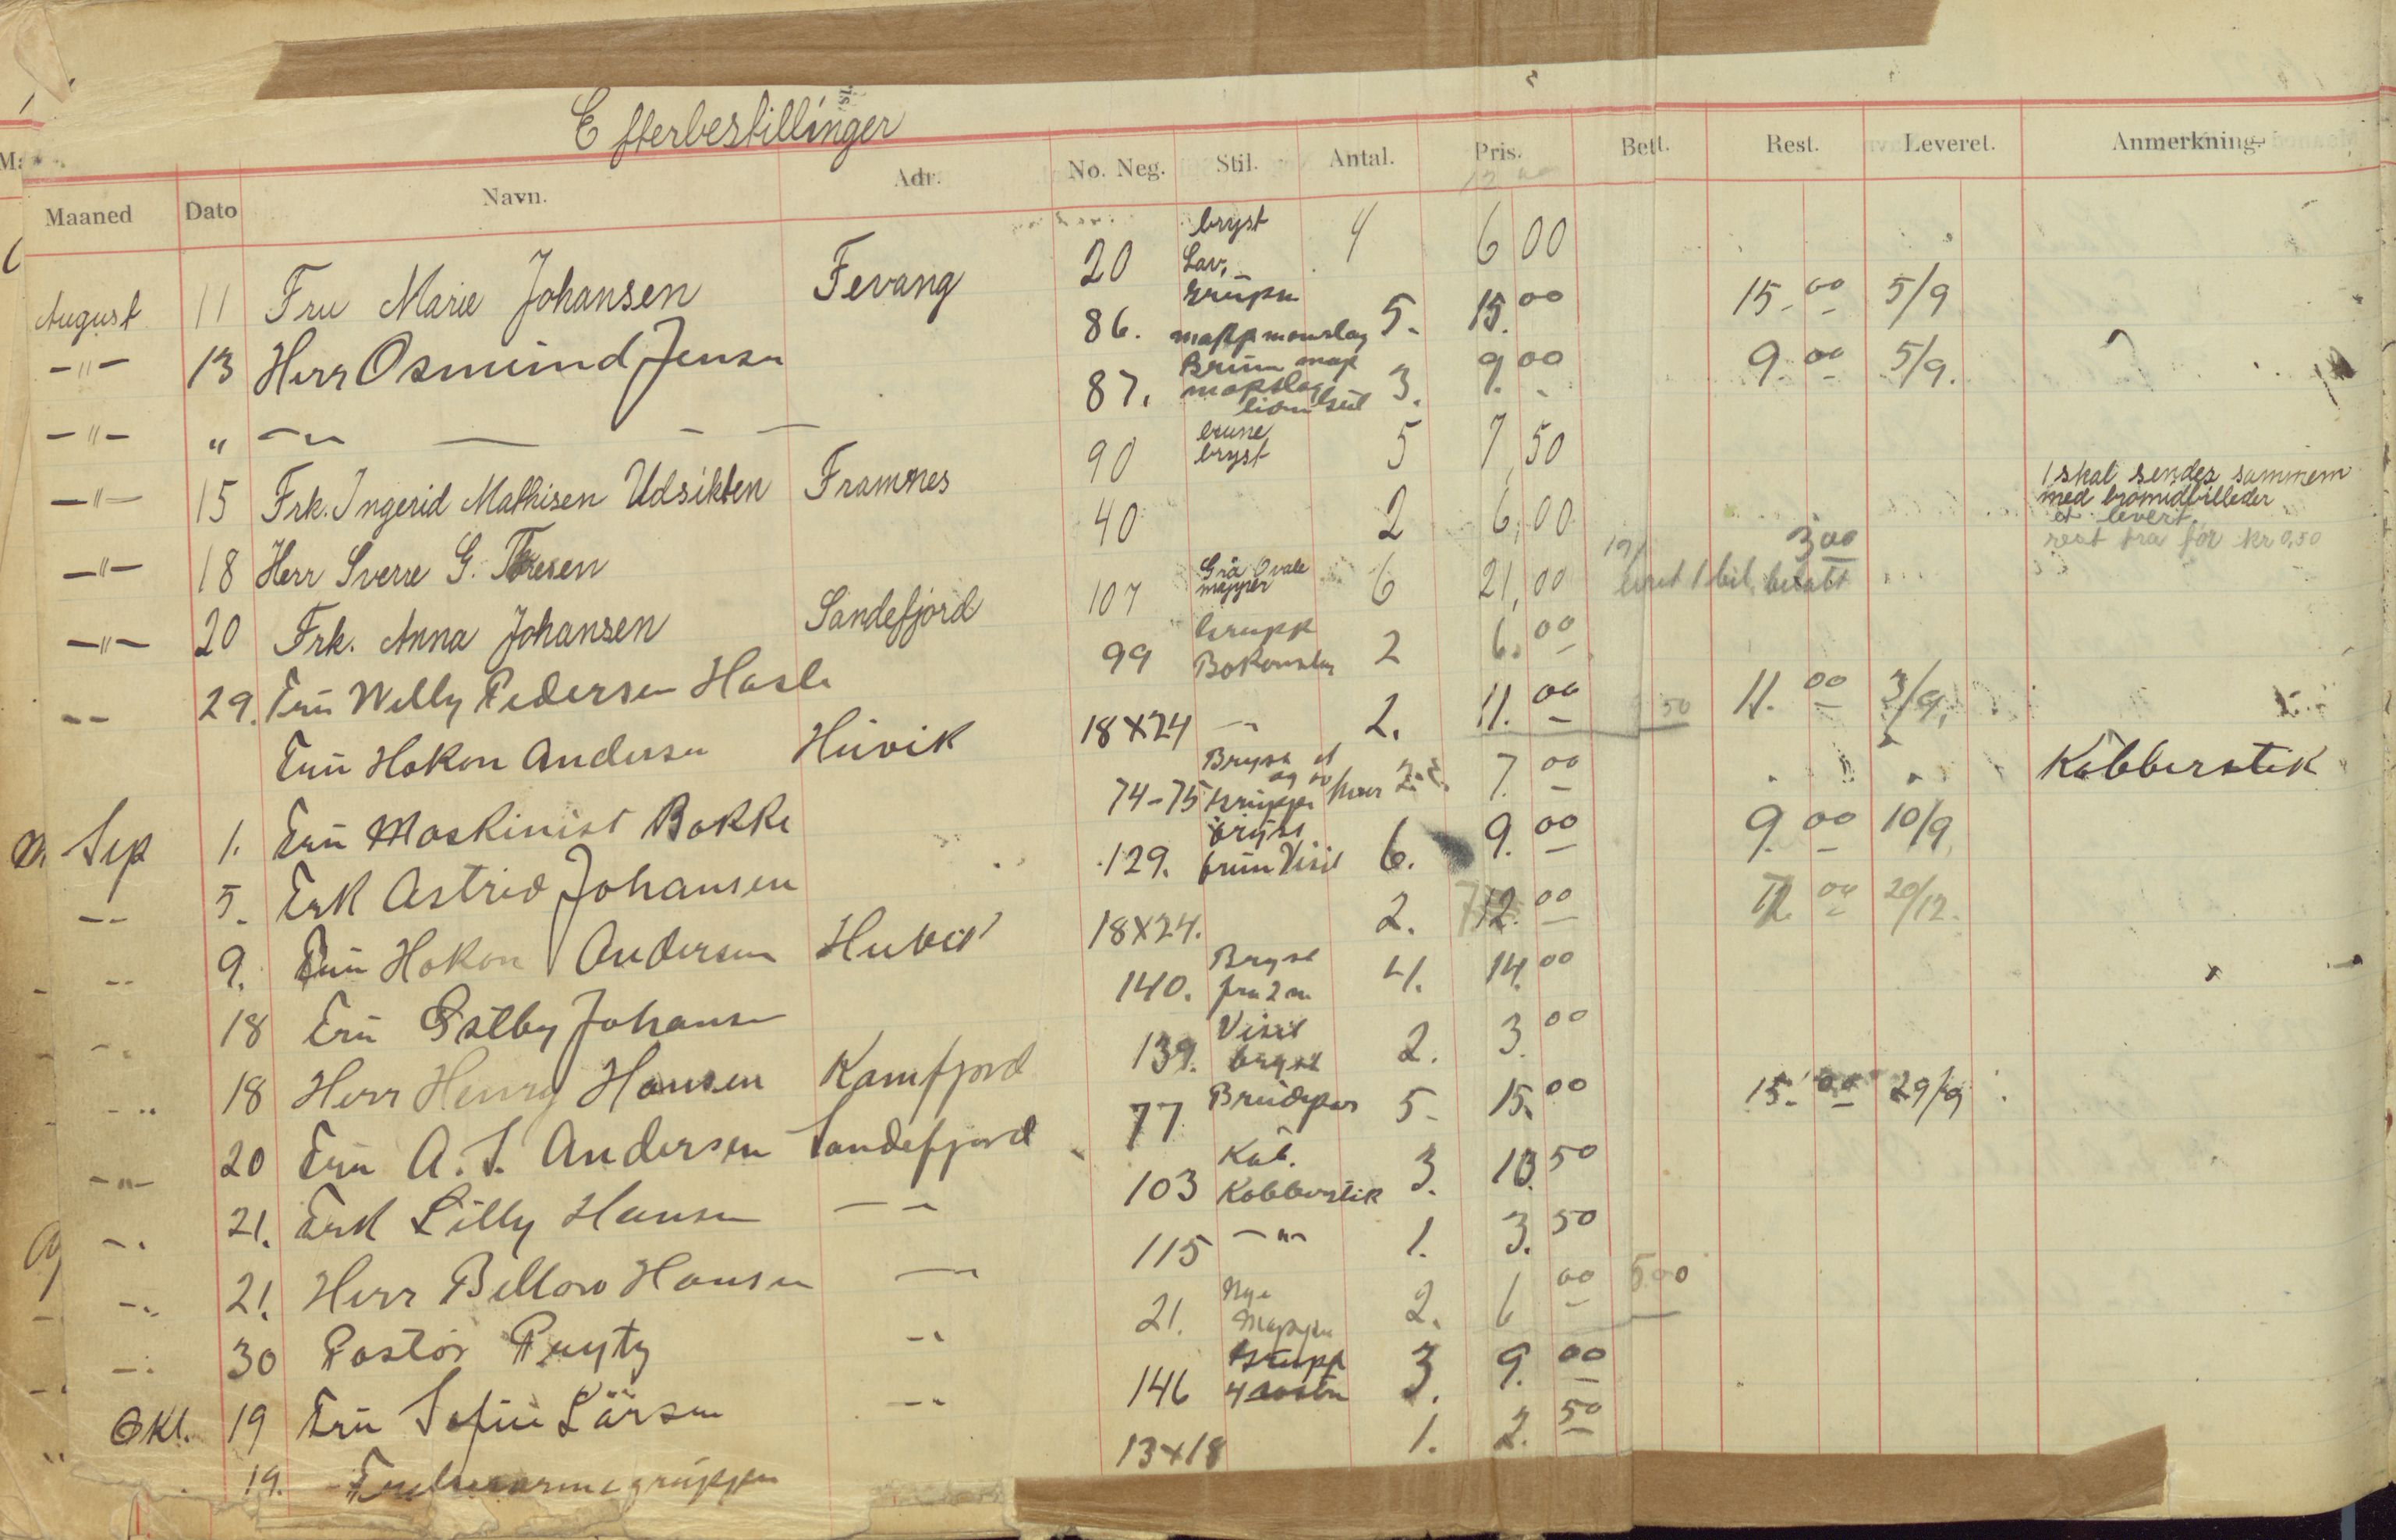 Efterbestillinger
Maaned Dato Navn. Adr. No. Neg. Stil. Antal. Pris. Bett. Rest. Leveret. Anmerkning.
August 11 Fru Marie Johansen Fevang 20 bryst Lav. 4 6 00
—"— 13 Herr Osmund Jensen 86. Gruppe 5. 15.00 15.00 5/9
—"— " —"— 87. Brun map 3. 9.00 9.00 5/9.
—"— 15 Frk. Ingerid Mathisen Udsikten Framnes 90 brune bryst 5 7,50
1 skal sendes sammem
med bromidbilleder
et levert
rest fra før kr 0,50
—"— 18 Herr Sverre G. Thoresen 40 2 6,00 3 00
—"— 20 Frk. Anna Johansen Sandefjord 107 Grå Ovale mapper 6 21,00 1 bil. betalt
-- 29. Fru Willy Pedersen Hasle 99 Grupp 2 6.00
Fru Hakon Andersen Huvik 18x24 -"- 2. 11.00 50 11.00 3/9.
Sep 1. Fru Maskinist Bakke 74-75 Bryst og Gruppe 7.00 Kobberstik
-- 5. Frk Astrid Johansen 129. bryst brun Visit 6. 9.00 9.00 10/9
-- 9. Fru Hakon Andersen Huvik 18x24. 2. 12.00 12.00 20/12.
18 Fru Østby Johansen 140. Bryst 4. 14.00
-- 18 Herr Henry Hansen Kamfjord 139. Visit bryst 2. 3.00
-"- 20 Fru A. S. Andersen Sandefjord 77 Brudepar 5- 15.00 15.00 29/9
21. Frk Lilly Hansen -- 103 Kab. Kobberstik 3. 10.50
-- 21. Herr Bellow Hansen — 115 -"- 1. 3.50
-- 30 Pastor -- 21. Nye Mapper 2. 6 00 5.00
Okt. 19 Fru Sofie Larsen -- 146 Grupp 3. 9.00
19. 13x18 1. 2.50